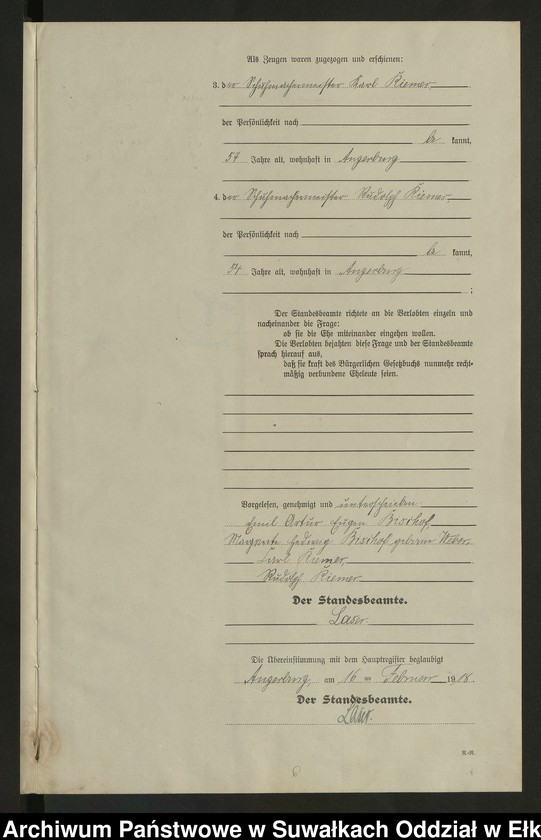 Als Zeugen waren zugezogen und erschienen:
3. der Schuhmachermeister Karl Riemer
der Persönlichkeit nach
be kannt,
54 Jahre alt, wohnhaft in Angerburg
4. der Schuhmachermeister Rudolph Riemer
der Persönlichkeit nach
be kannt,
Jahre alt, wohnhaft in Angerburg
;
Der Standesbeamte richtete an die Verlobten einzeln und
nacheinander die Frage:
ob sie die Ehe miteinander eingehen wollen.
Die Verlobten bejahten diese Frage und der Standesbeamte
sprach hierauf aus,
daß sie kraft des Bürgerlichen Gesetzbuchs nunmehr recht-
mäßig verbundene Eheleute seien.
Vorgelesen, genehmigt und unterschrieben
Emil Artur Eugen Bischof
Hedwig Bischof geborene Weber
Karl Riemer
Rudolph Riemer
Der Standesbeamte.
Laser
Die Übereinstimmung mit dem Hauptregister beglaubigt
Angerburg, am 16 ten Februar 1918.
Der Standesbeamte.
Laser.
R.-R.
Archiwum Państwowe w Suwałkach Oddział w Ełk